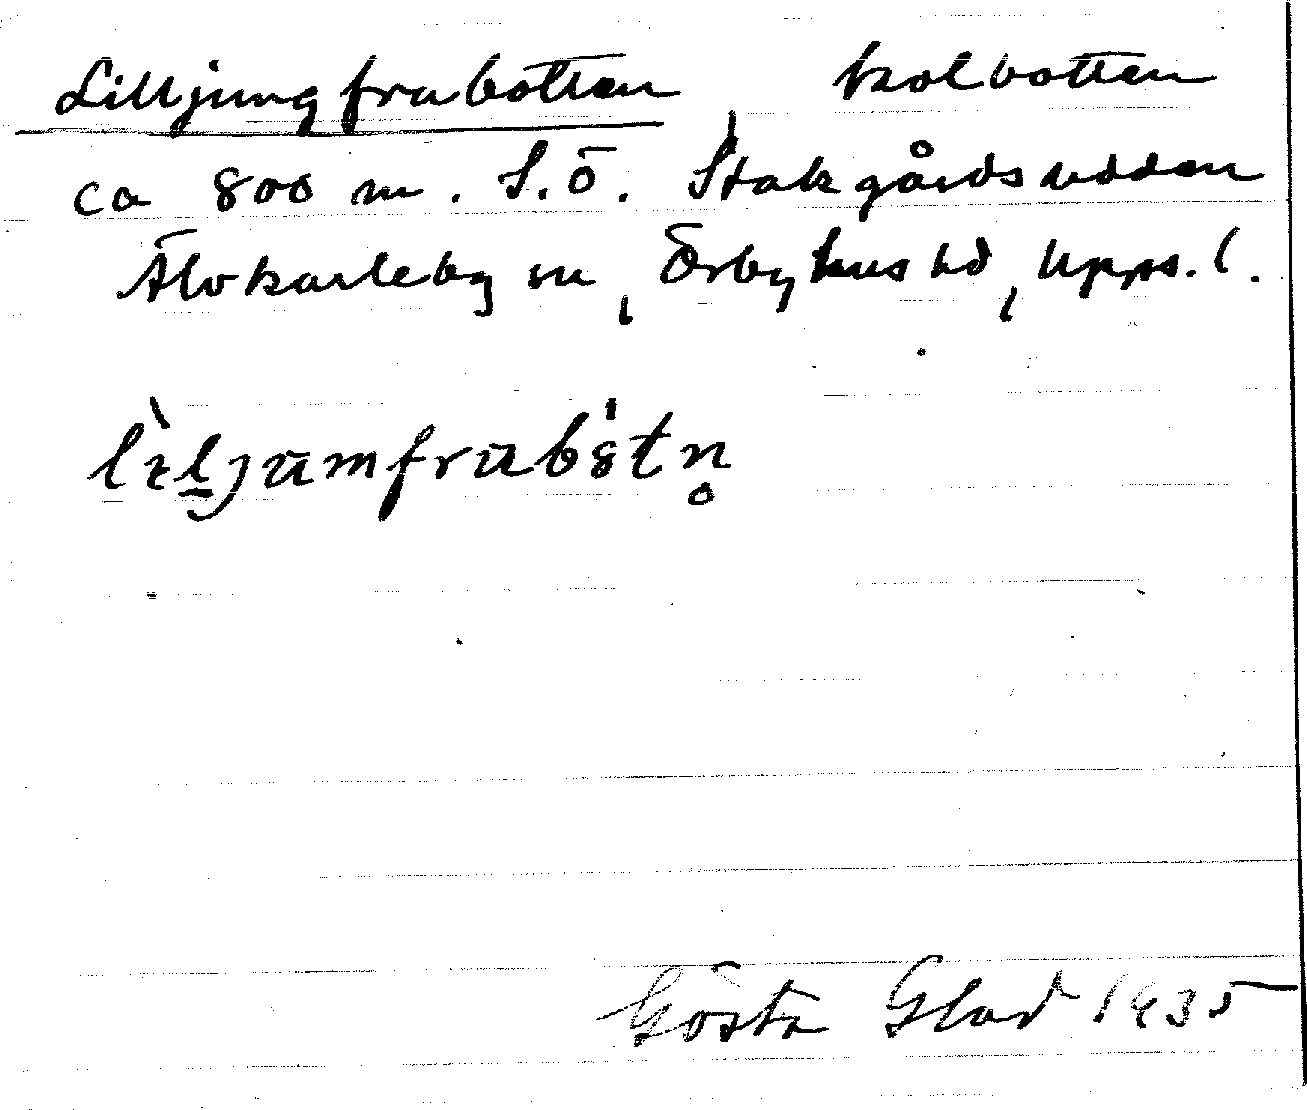 Lilljungfrubotten, kolbotten
ca 800 m. S.ö. Stakgårdsudden
Älvkarleby sn, Örbyhus hd, Upps. l.
lìljumfrubåtn̥
Gösta Glad 1935